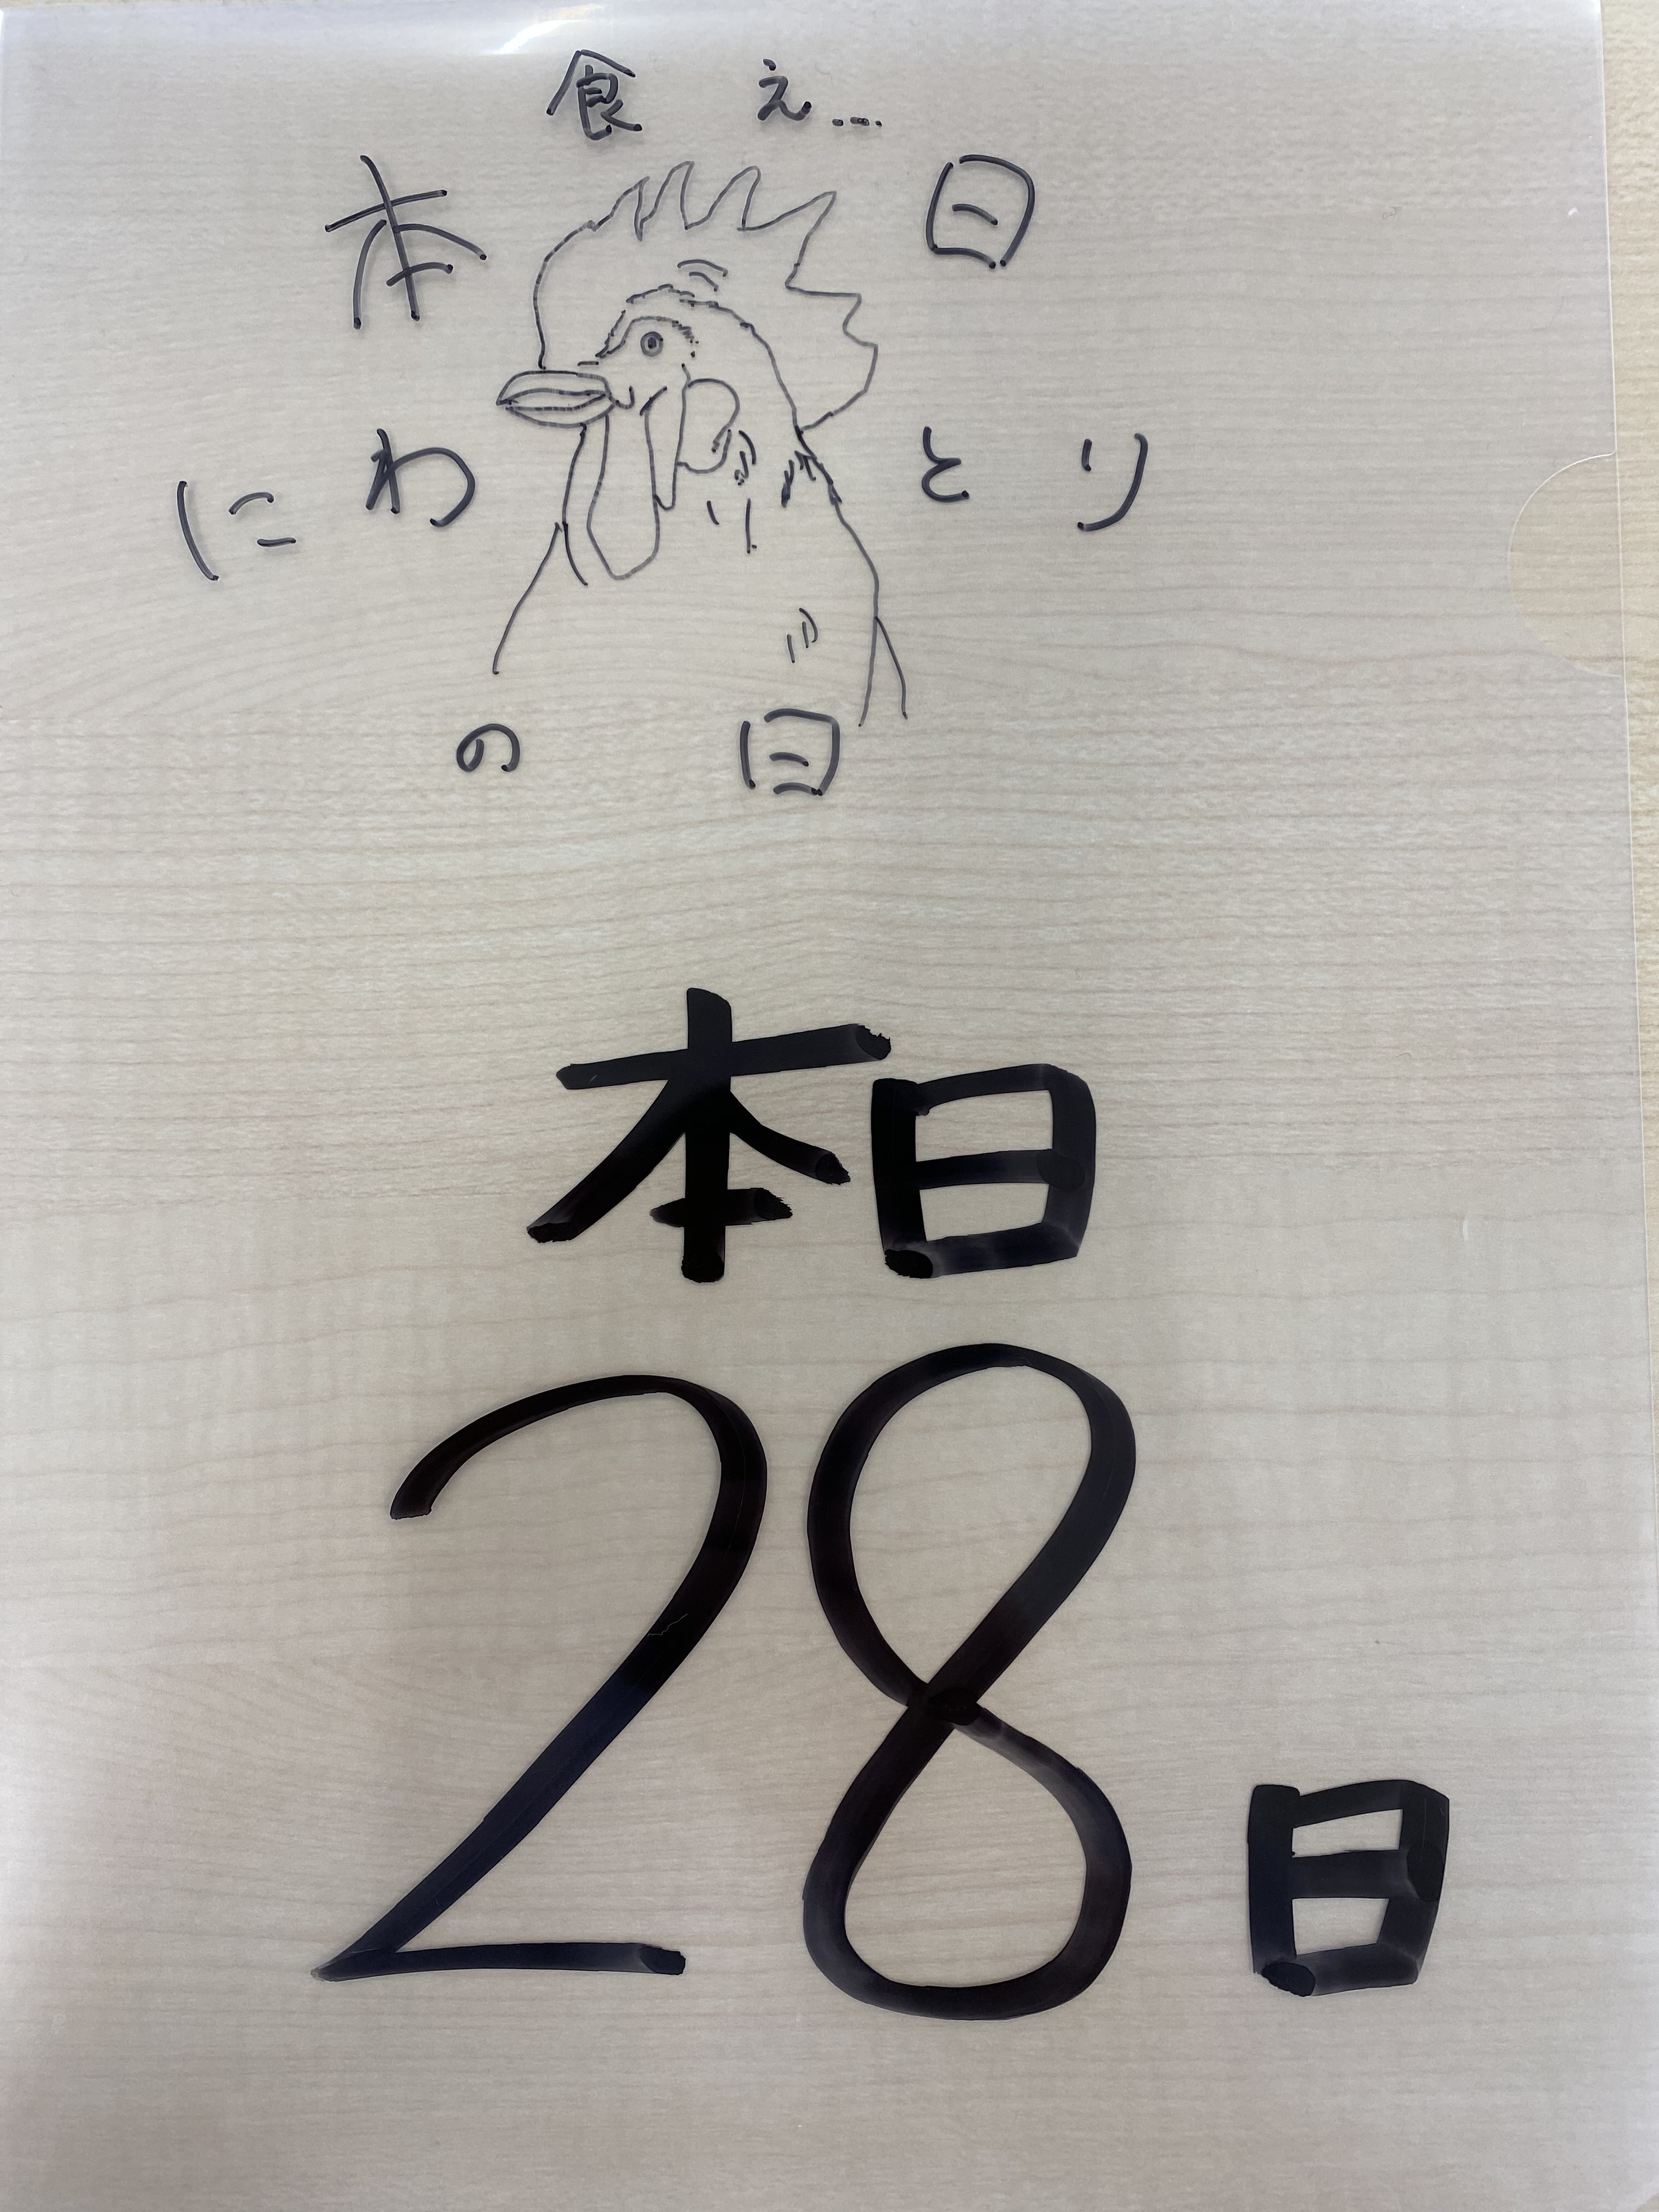 食え...
本日
にわとり
の日
本日
28日